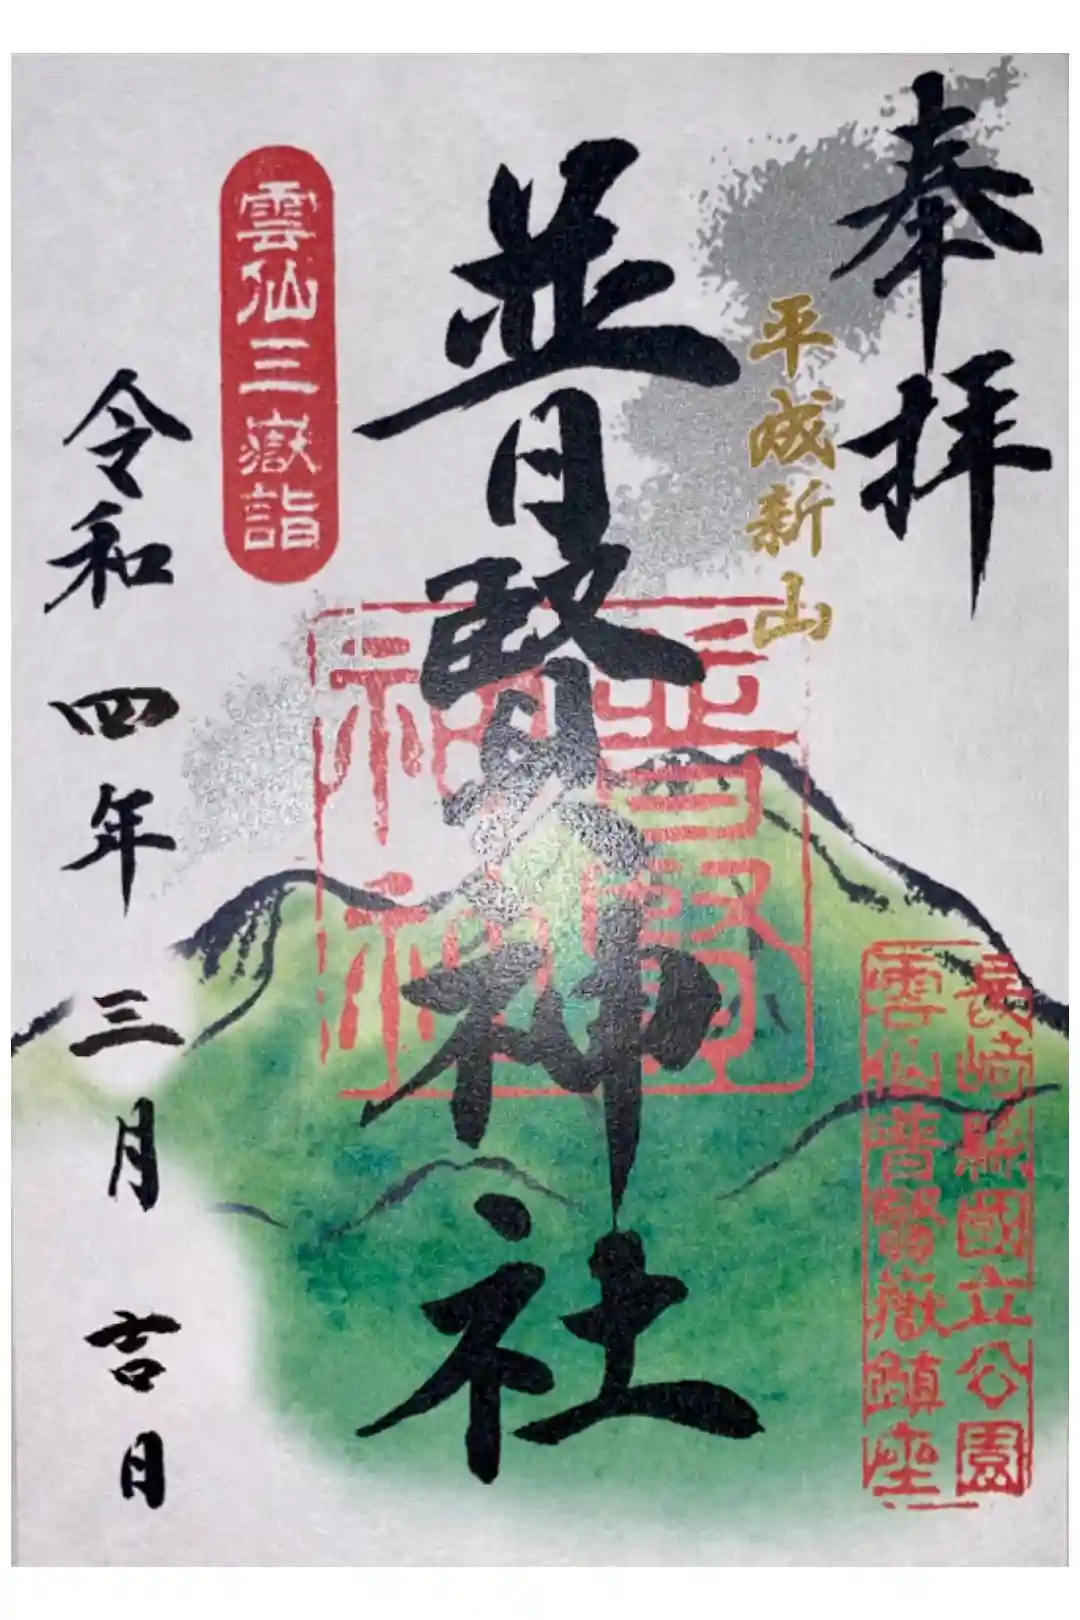 奉拝
平成新山
普賢神社
雲仙三嶽詣
令和四年三月吉日
普賢
神社
長崎縣國立公園
雲仙普賢嶽鎮座